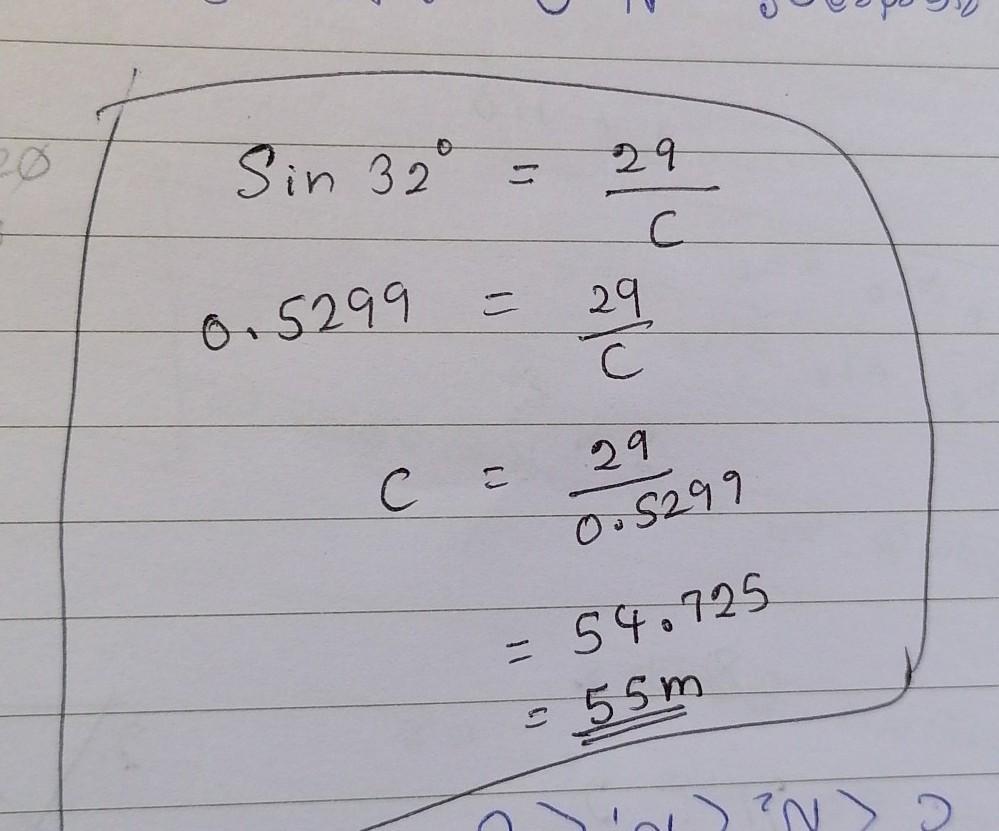 Sin 32° = 29/C
0.5299 = 29/C
C = 29/0.5299
= 54.725
= 55m